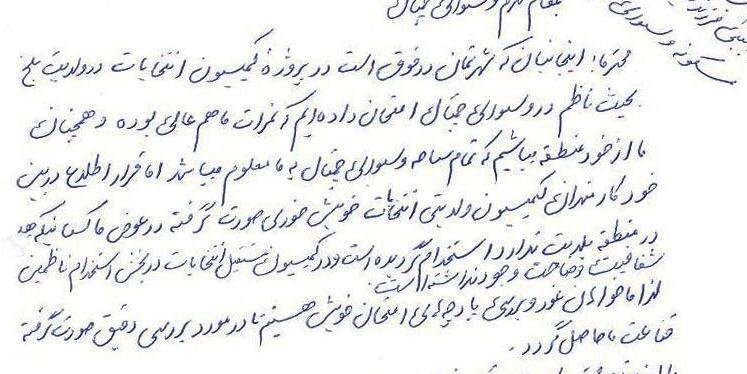 بمقام محترم ولسوالی چمتال
مسکونه ولسوالی
محترما! اینجانبان که شهرتمان در فوق است در پروژهٔ کمیسیون انتخابات در ولایت بلخ
بحیث ناظم در ولسوالی چمتال امتحان داده ایم که نمرات ما هم عالی بوده و همچنان
ما از خود منطقه میباشیم که تمام ساحه ولسوالی چمتال به ما معلوم میباشد اما قرار اطلاع در بین
خود کارمندان کمیسیون ولایتی انتخابات خویش خوری صورت گرفته در عوض ما کسانیکه
در منطقه بلدیت ندارد استخدام گردیده است و در کمیسیون مستقل انتخابات در بخش استخدام ناظمین
شفافیت وضاحت وجود نداشته است.
لذا ما خواهان غور و بررسی پارچه های امتحان خویش هستیم تا در مورد بررسی دقیق صورت گرفته
قناعت ما حاصل گردد.